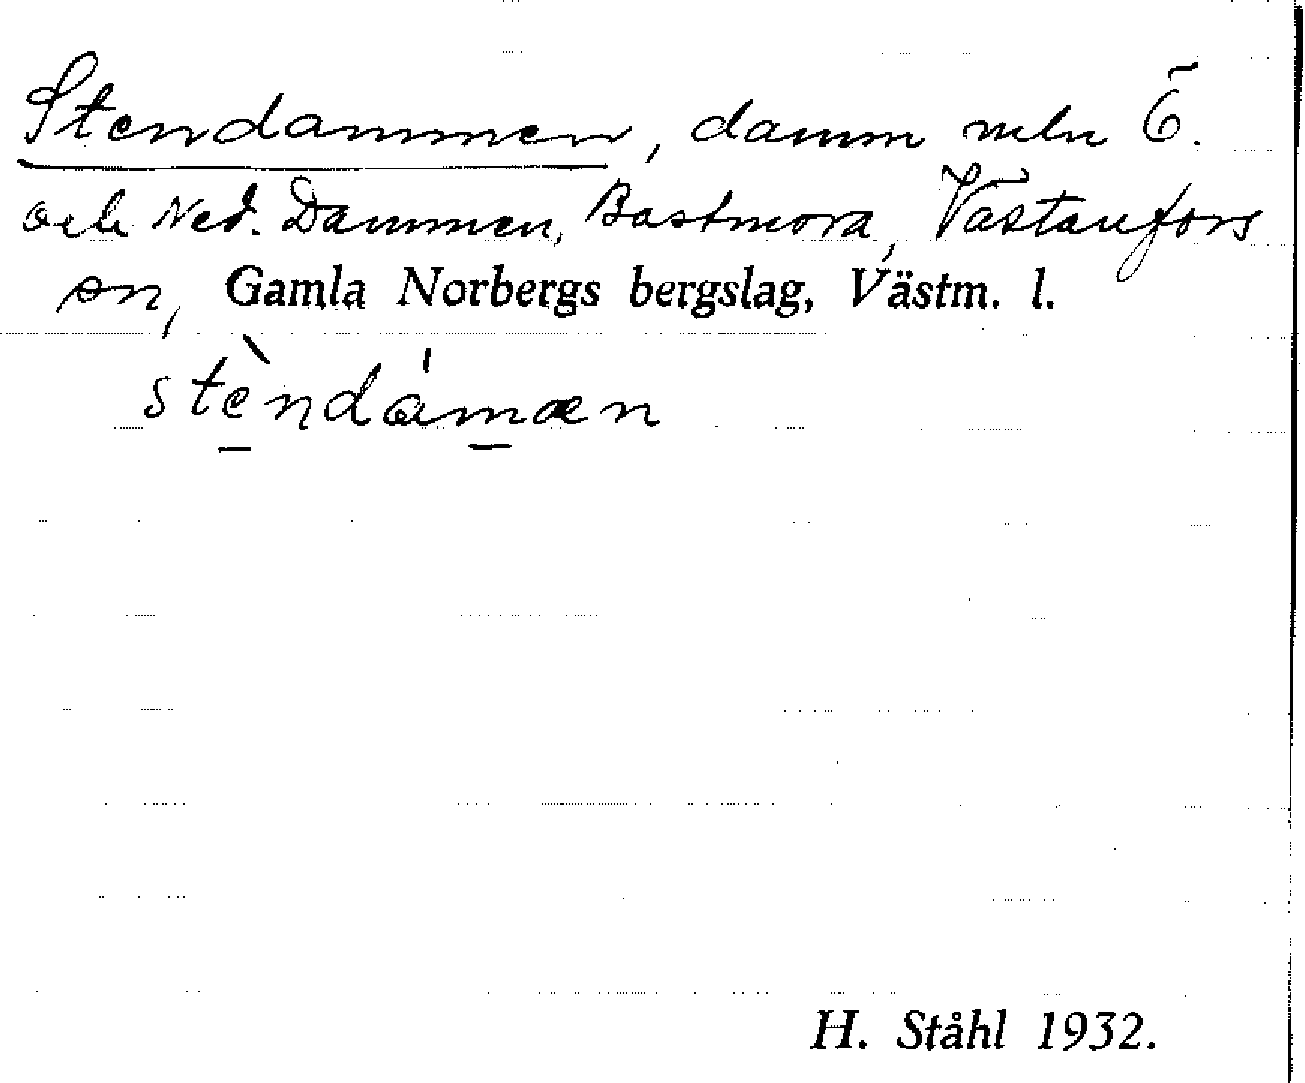 Stendammen, damm mln Ö.
och Ned. Dammen, Bastmora, Västanfors
sn, Gamla Norbergs bergslag, Västm. l.
stè̱ndám̱æn
H. Ståhl 1932.